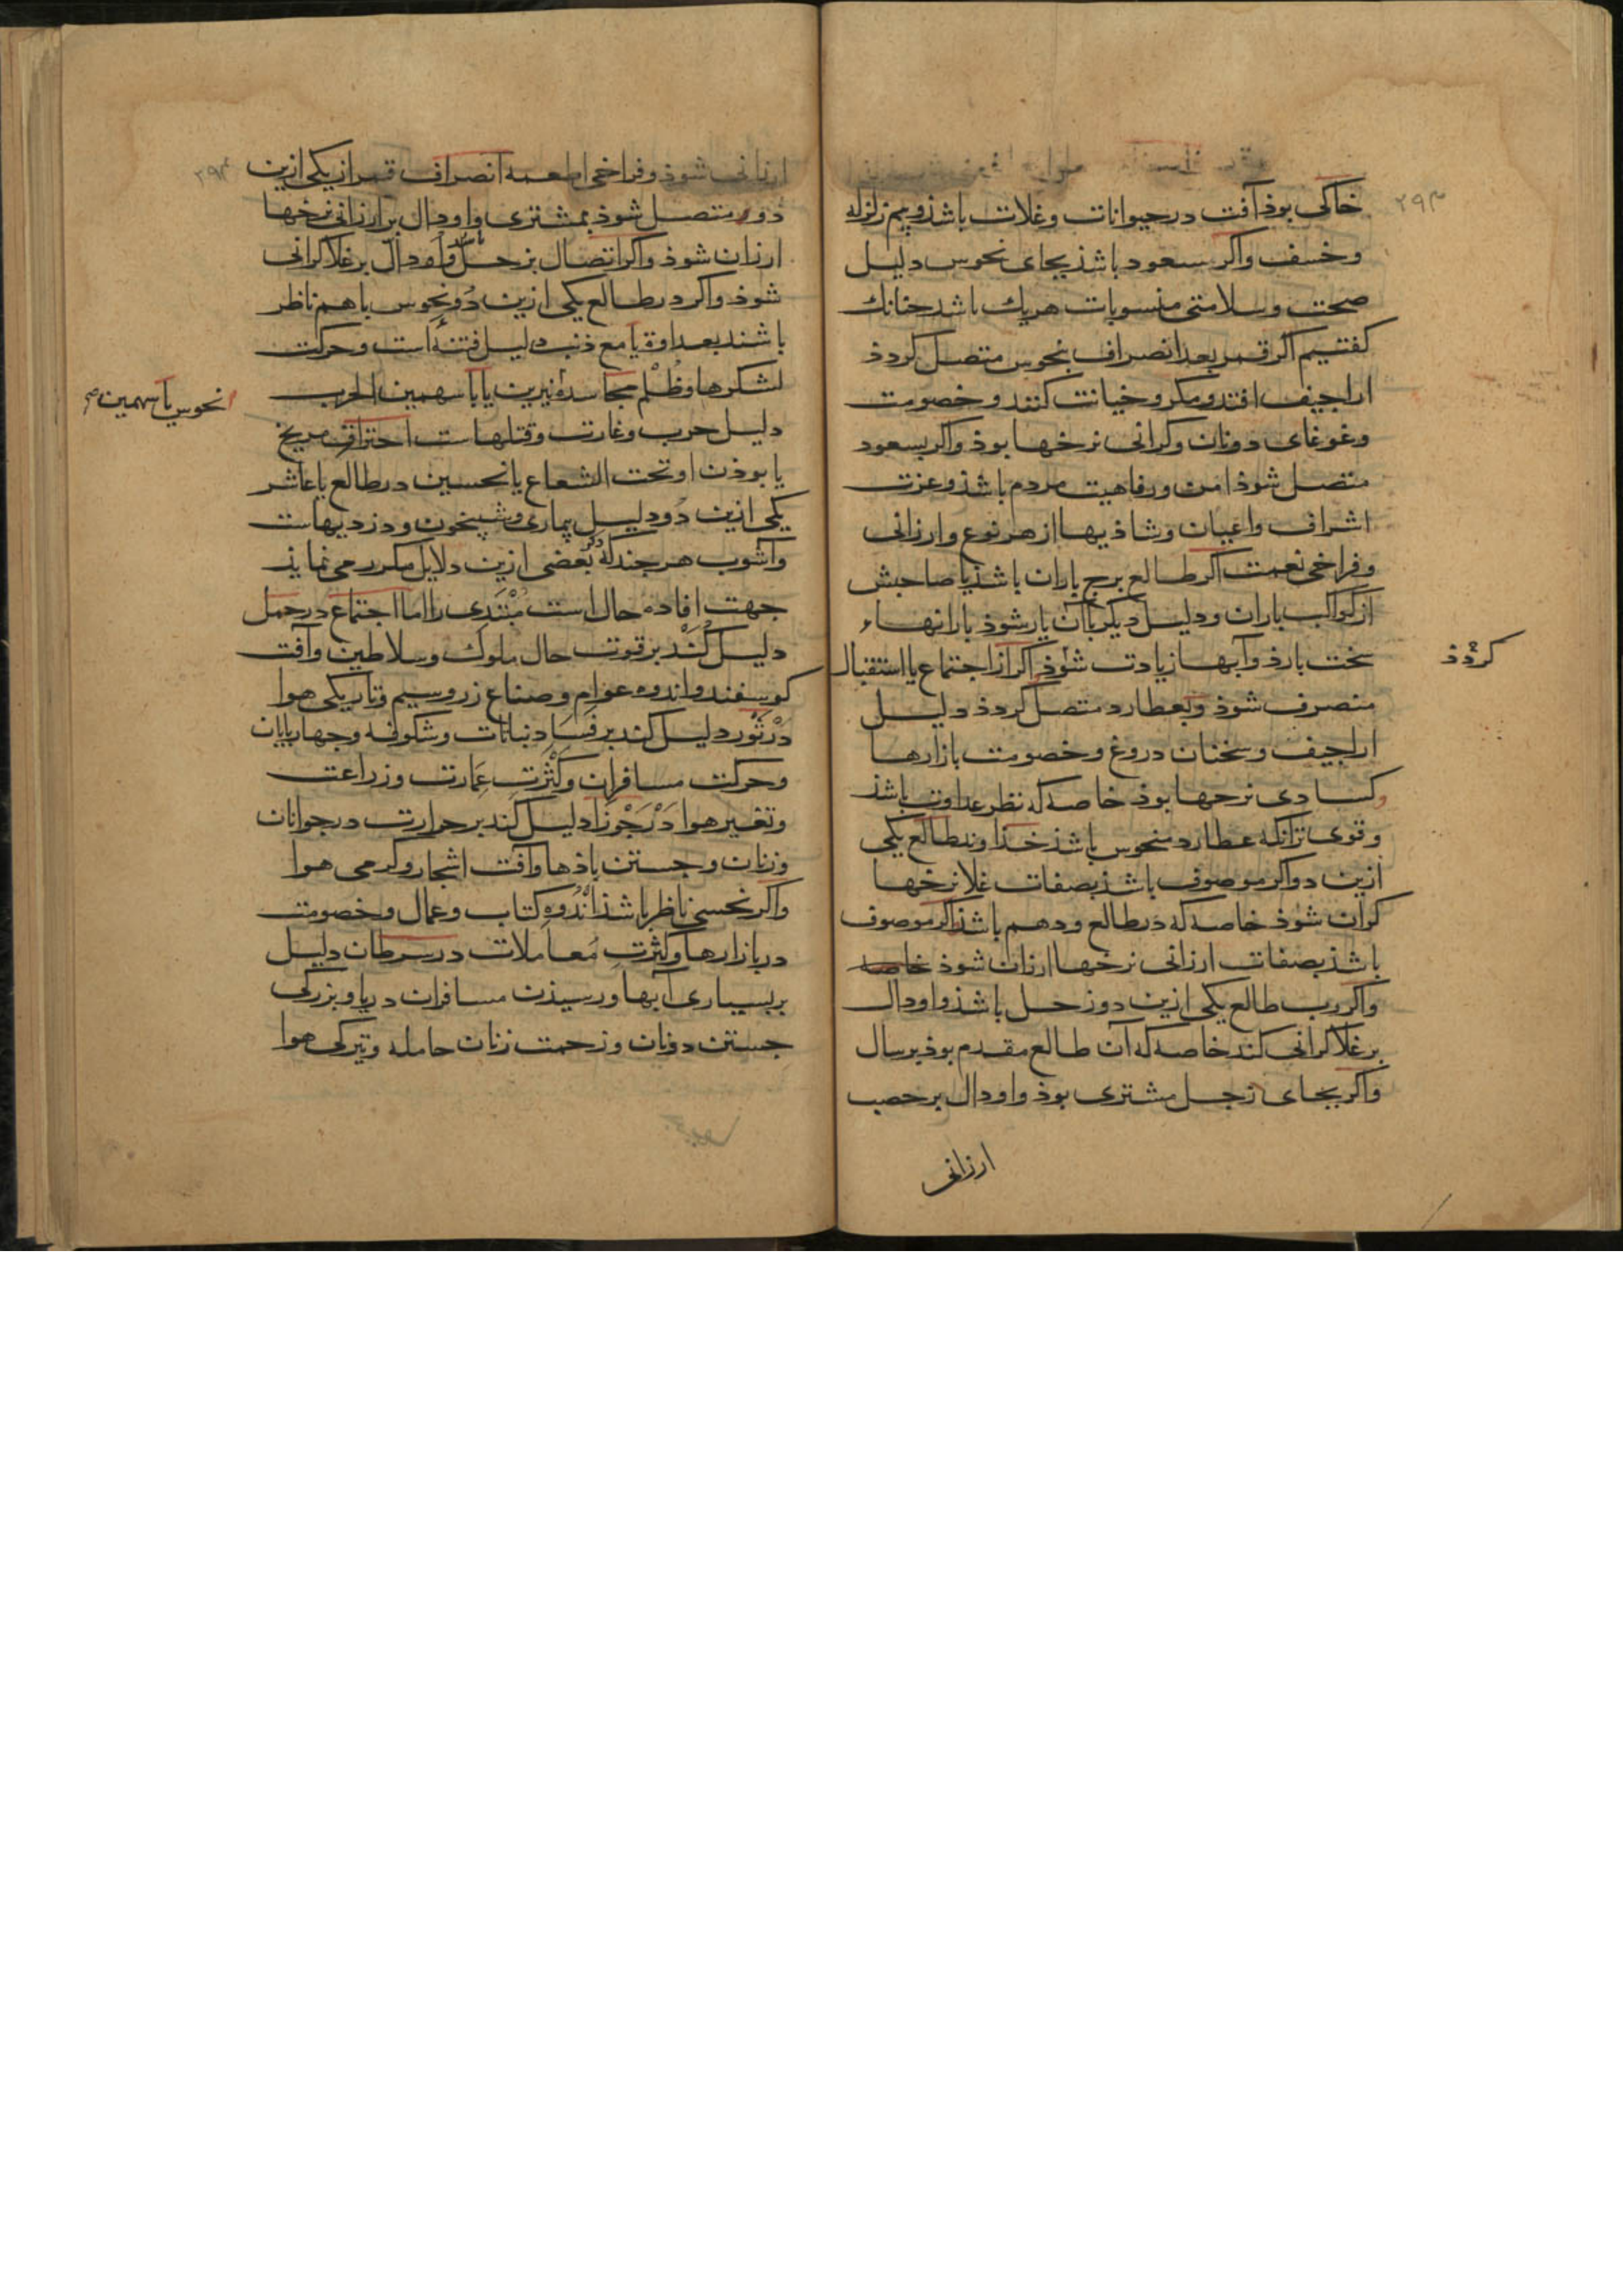 ۲۹۳
خاکی بوذ آفت در حیوانات وغلات باشذ وبیم زلزله
وخسف واکر سعود باشذ بجای نحوس دلیل
صحت وسلامتی منسوبات هریك باشد جنانك
کفتیم اکر قمر بعد انصراف بنحوس متصل کردذ
اراجیف افتد ومکر وخیانت کنند وخصومت
وغوغای دونان وکرانی نرخها بوذ واکر بسعود
متصل شوذ امن ورفاهیت مردم باشذ وعزت
اشراف واعیان وشاذیها از هر نوع وارزانی
وفراخی نعمت اکر طالع برج باران باشذ یا صاحبش
از کواکب باران ودلیل دیکر باآن یار شوذ بارانهاء
سخت بارذ وآبها زیادت شوذ اکر از اجتماع یا استقبال
کردذ
منصرف شوذ وبعطارد متصل کردذ دلیل
اراجیف وسخنان دروغ وخصومت بازارها
وکسادی نرخها بوذ خاصه که نظر عداوت باشذ
وقوی تر آنکه عطارد منحوس باشذ خذاوند طالع یکی
ازین دو اکر موصوف باشذ بصفات غلا نرخها
کران شوذ خاصه که در طالع ودهم باشذ اکر موصوف
باشذ بصفات ارزانی نرخها ارزان شوذ خاصه
واکر رب طالع یکی ازین دو زحل باشذ واو دال
بر غلا کرانی کند خاصه که آن طالع مقدم بوذ بر سال
واکر بجای زحل مشتری بوذ واو دال بر خصب
ارزانی
۲۹۴
ارزانی شوذ وفراخی اطعمه انصراف قمر از یکی ازین
دو ومتصل شوذ بمشتری واو دال بر ارزانی نرخها
ارزان شوذ واکر اتصال بزحل واو دال بر غلا کرانی
شوذ واکر در طالع یکی ازین دو نحوس باهم ناظر
باشند بعداوة یا مع ذنب دلیل فتنه است وحرکت
لشکرها وظلم مجاسده نیرین یا با سهمین الحرب
نحوس یا سهمین
دلیل حرب وغارت وقتلهاست احتراق مریخ
یا بوذن او تحت الشعاع یا نحسین در طالع یا عاشر
یکی ازین دو دلیل بیماری وشبیخون ودزدیهاست
وآشوب هر جند که ذکر بعضی ازین دلایل مکرر می نماید
جهت افاده حال است مبتدی را اما اجتماع در حمل
دلیل کند بر قوت حال ملوك وسلاطین وآفت
کوسفند واندوه عوام وصناع زر وسیم وتاریکی هوا
در ثور دلیل کند بر فساد نباتات وشکوفه وجهارپایان
وحرکت مسافران وکثرت عمارت وزراعت
وتغیر هوا در جوزا دلیل کند بر حرارت در جوانان
وزنان وجستن باذها وآفت اشجار وکرمی هوا
واکر نحسی ناظر باشذ اندوه کتاب وعمال وخصومت
در بازارها وکثرت معاملات در سرطان دلیل
بر بسیاری آبها ورسیذن مسافران دریا وبزرکی
جستن دونان وزحمت زنان حامله وتیرکی هوا